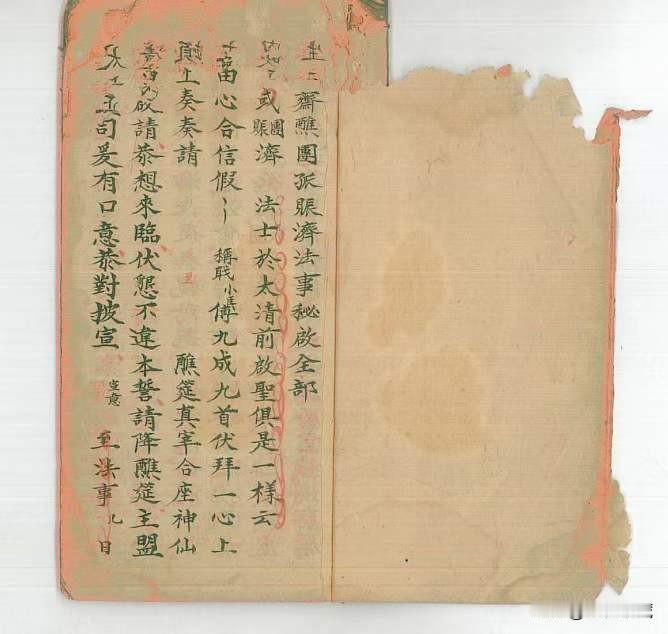 齋醮團孤賑濟法事秘啟全部
或團賑濟 法士於太清前啟聖俱是一樣云
當心合信假 稱職小臣 傅九成九首伏拜一心上
頭上奏奏請 醮筵真宰合座神仙
啟請恭想來臨伏懇不違本誓請降醮筵主盟
司爰有口意恭對披宣 宣意 至法事九日